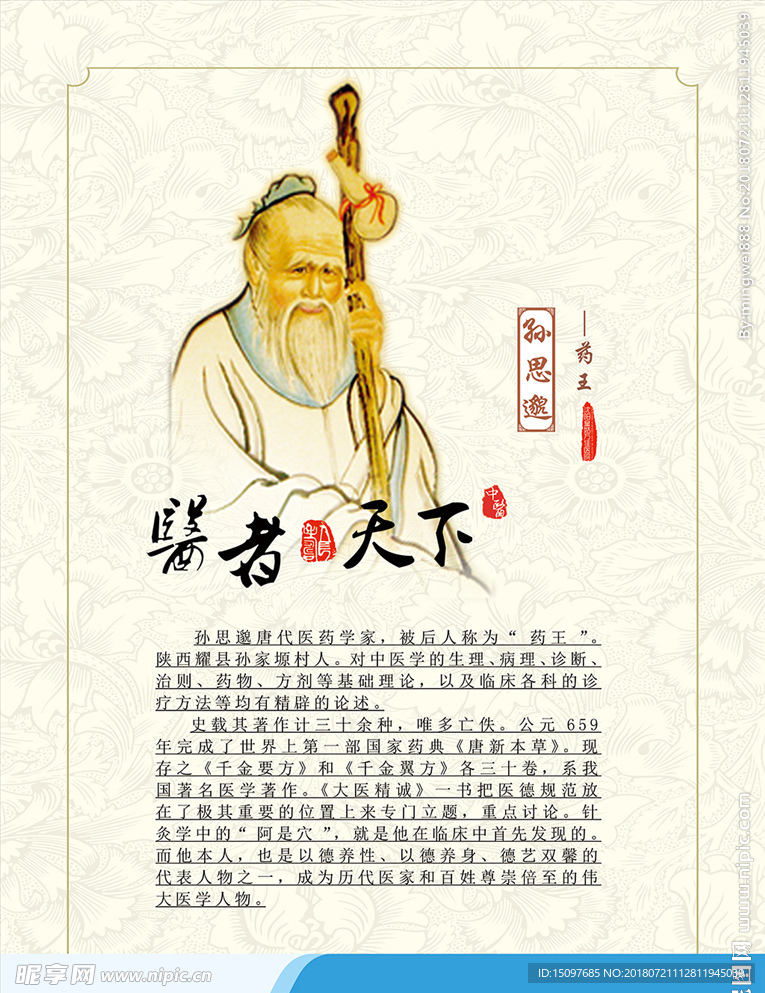 孙思邈
——药王
中醫
醫者天下
孙思邈唐代医药学家，被后人称为“ 药王 ”。
陕西耀县孙家塬村人。对中医学的生理、病理、诊断、
治则、药物、方剂等基础理论，以及临床各科的诊
疗方法等均有精辟的论述。
史载其著作计三十余种，唯多亡佚。公元 659
年完成了世界上第一部国家药典《唐新本草》。现
存之《千金要方》和《千金翼方》各三十卷，系我
国著名医学著作。《大医精诚》一书把医德规范放
在了极其重要的位置上来专门立题，重点讨论。针
灸学中的“ 阿是穴 ”，就是他在临床中首先发现的。
而他本人，也是以德养性、以德养身、德艺双馨的
代表人物之一，成为历代医家和百姓尊崇倍至的伟
大医学人物。
By:mingwei888 No:20180721112811945039
www.nipic.com
昵图网
昵享网 www.nipic.cn
ID:15097685 NO:20180721112811945039